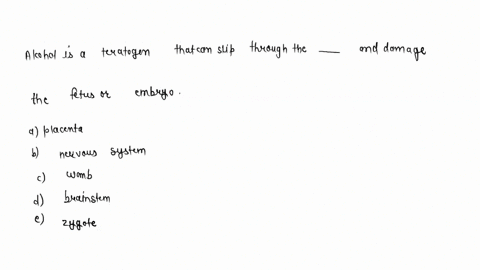 Alcohol is a teratogen that can slip through the ___ and damage
the fetus or embryo.
a) placenta
b) nervous system
c) womb
d) brainstem
e) zygote